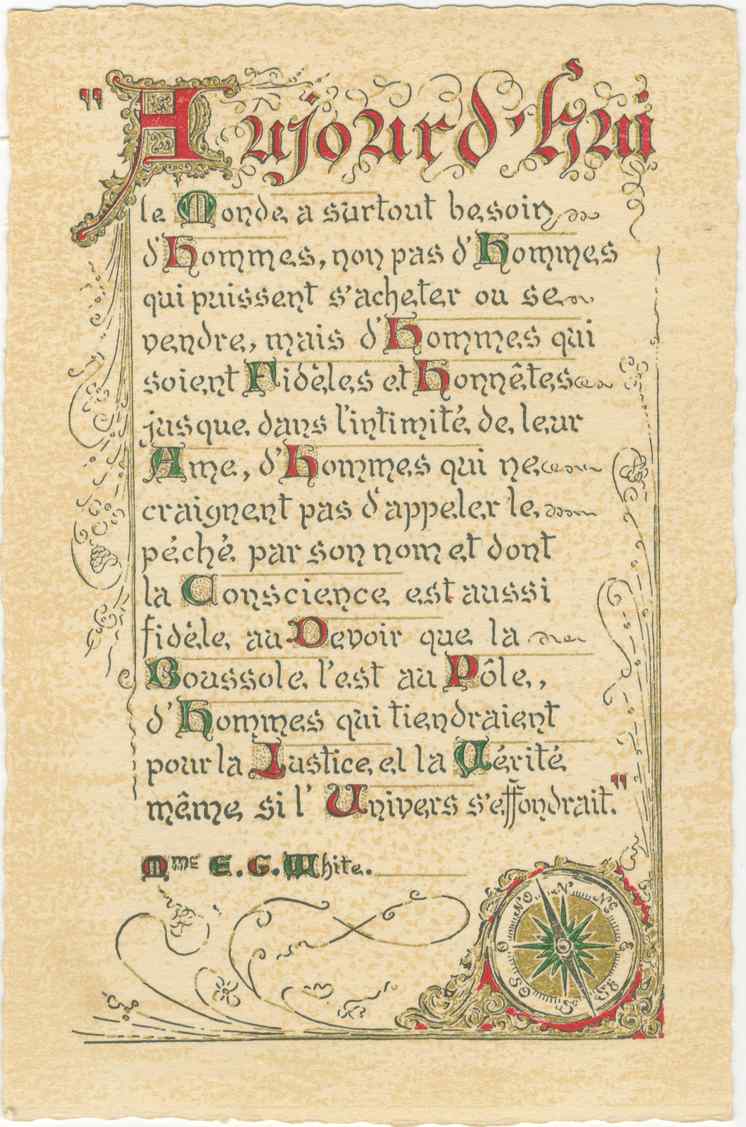 "Aujourd'hui
le Monde a surtout besoin
d'Hommes, non pas d'Hommes
qui puissent s'acheter ou se
vendre, mais d'Hommes qui
soient Fidèles et Honnêtes
jusque dans l'intimité de leur
Ame, d'Hommes qui ne
craignent pas d'appeler le
péché par son nom et dont
la Conscience est aussi
fidèle au Devoir que la
Boussole l'est au Pôle,
d'Hommes qui tiendraient
pour la Justice et la Vérité
même si l'Univers s'effondrait."
Mme E. G. White.
N
NE
E
SE
S
SO
O
NO